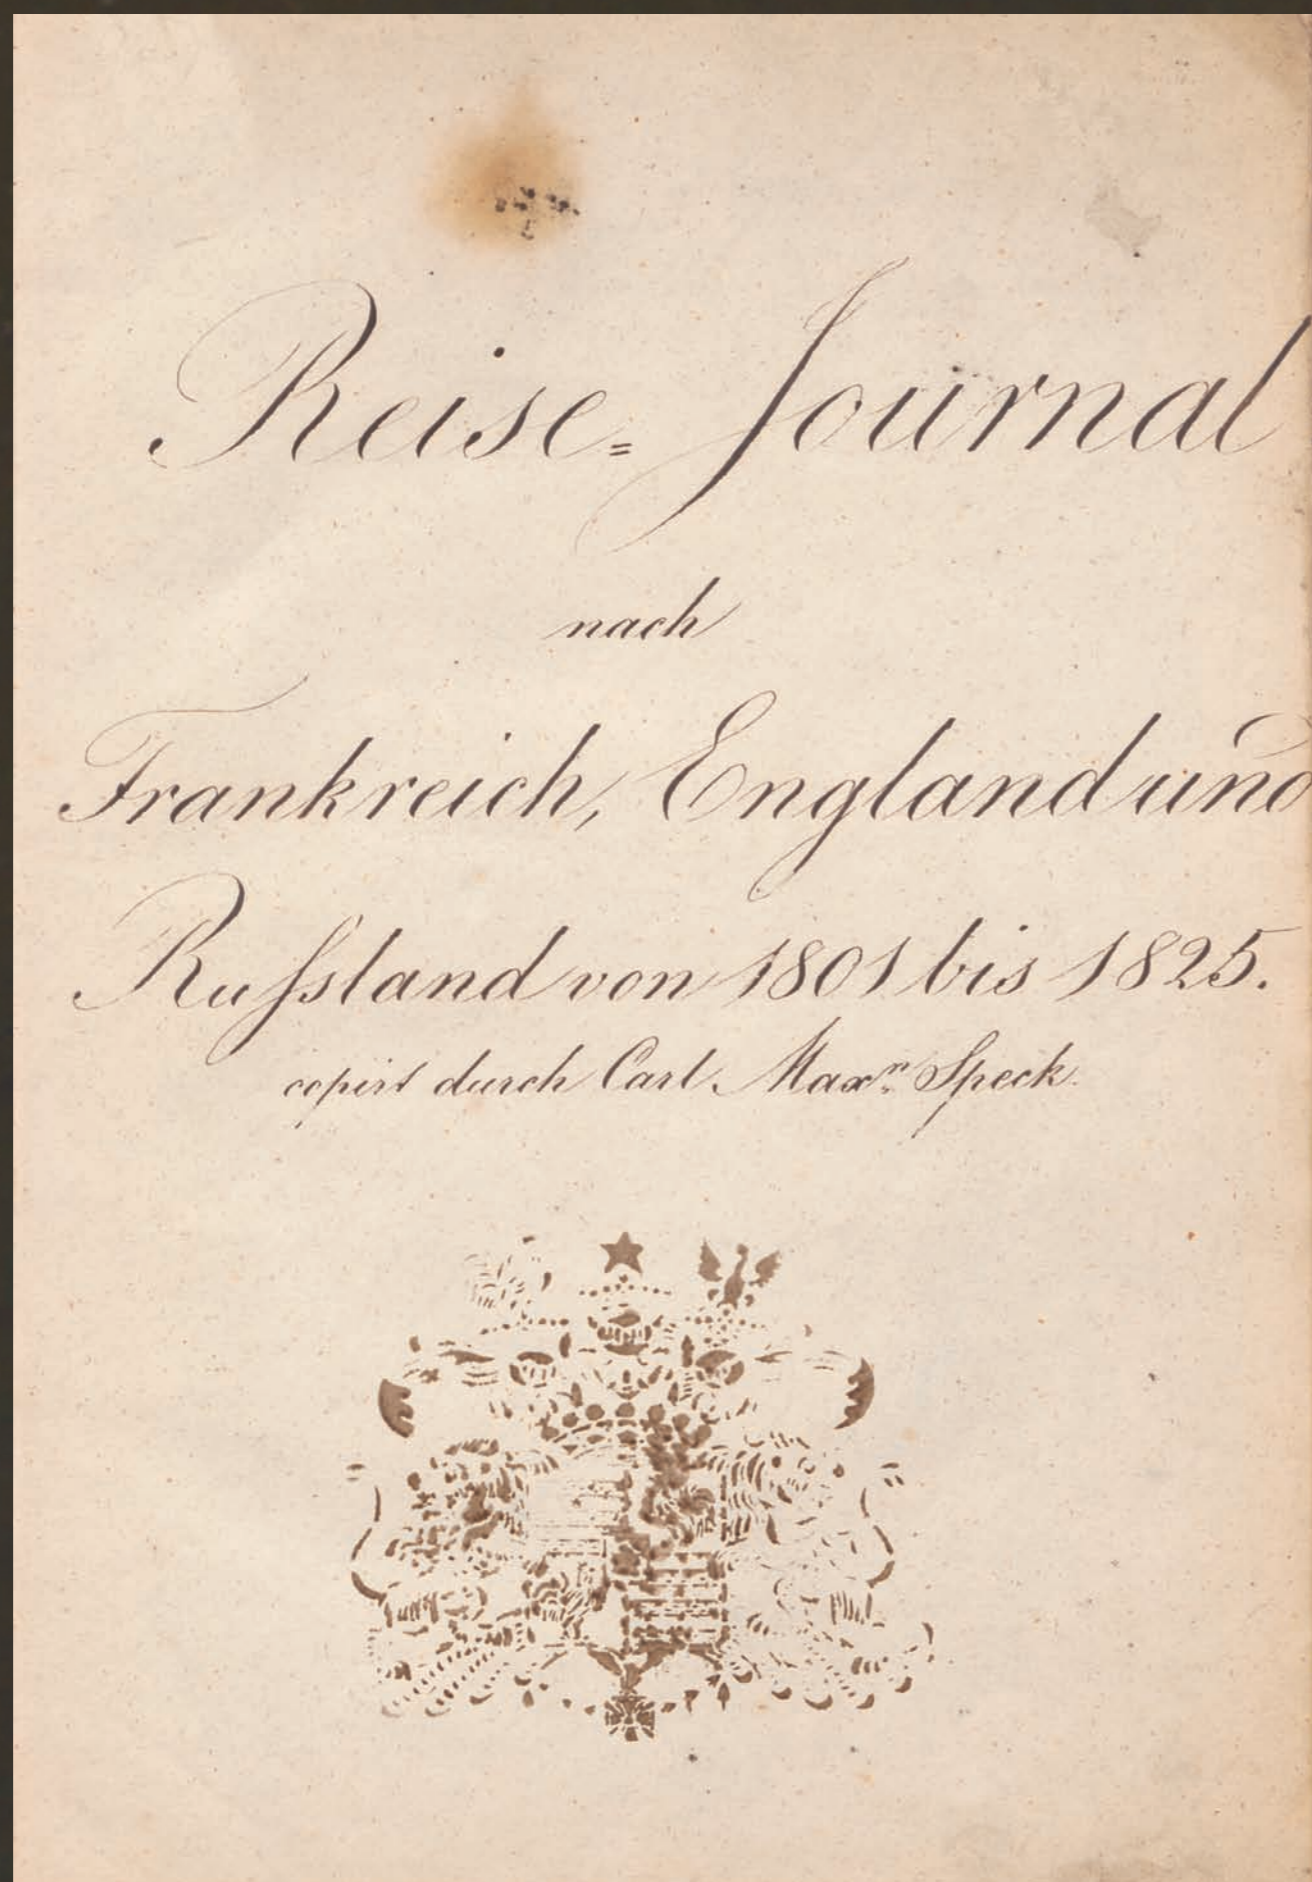 Reise= Journal
nach
Frankreich, England und
Rußland von 1801 bis 1825.
copirt durch Carl Maxn. Speck.